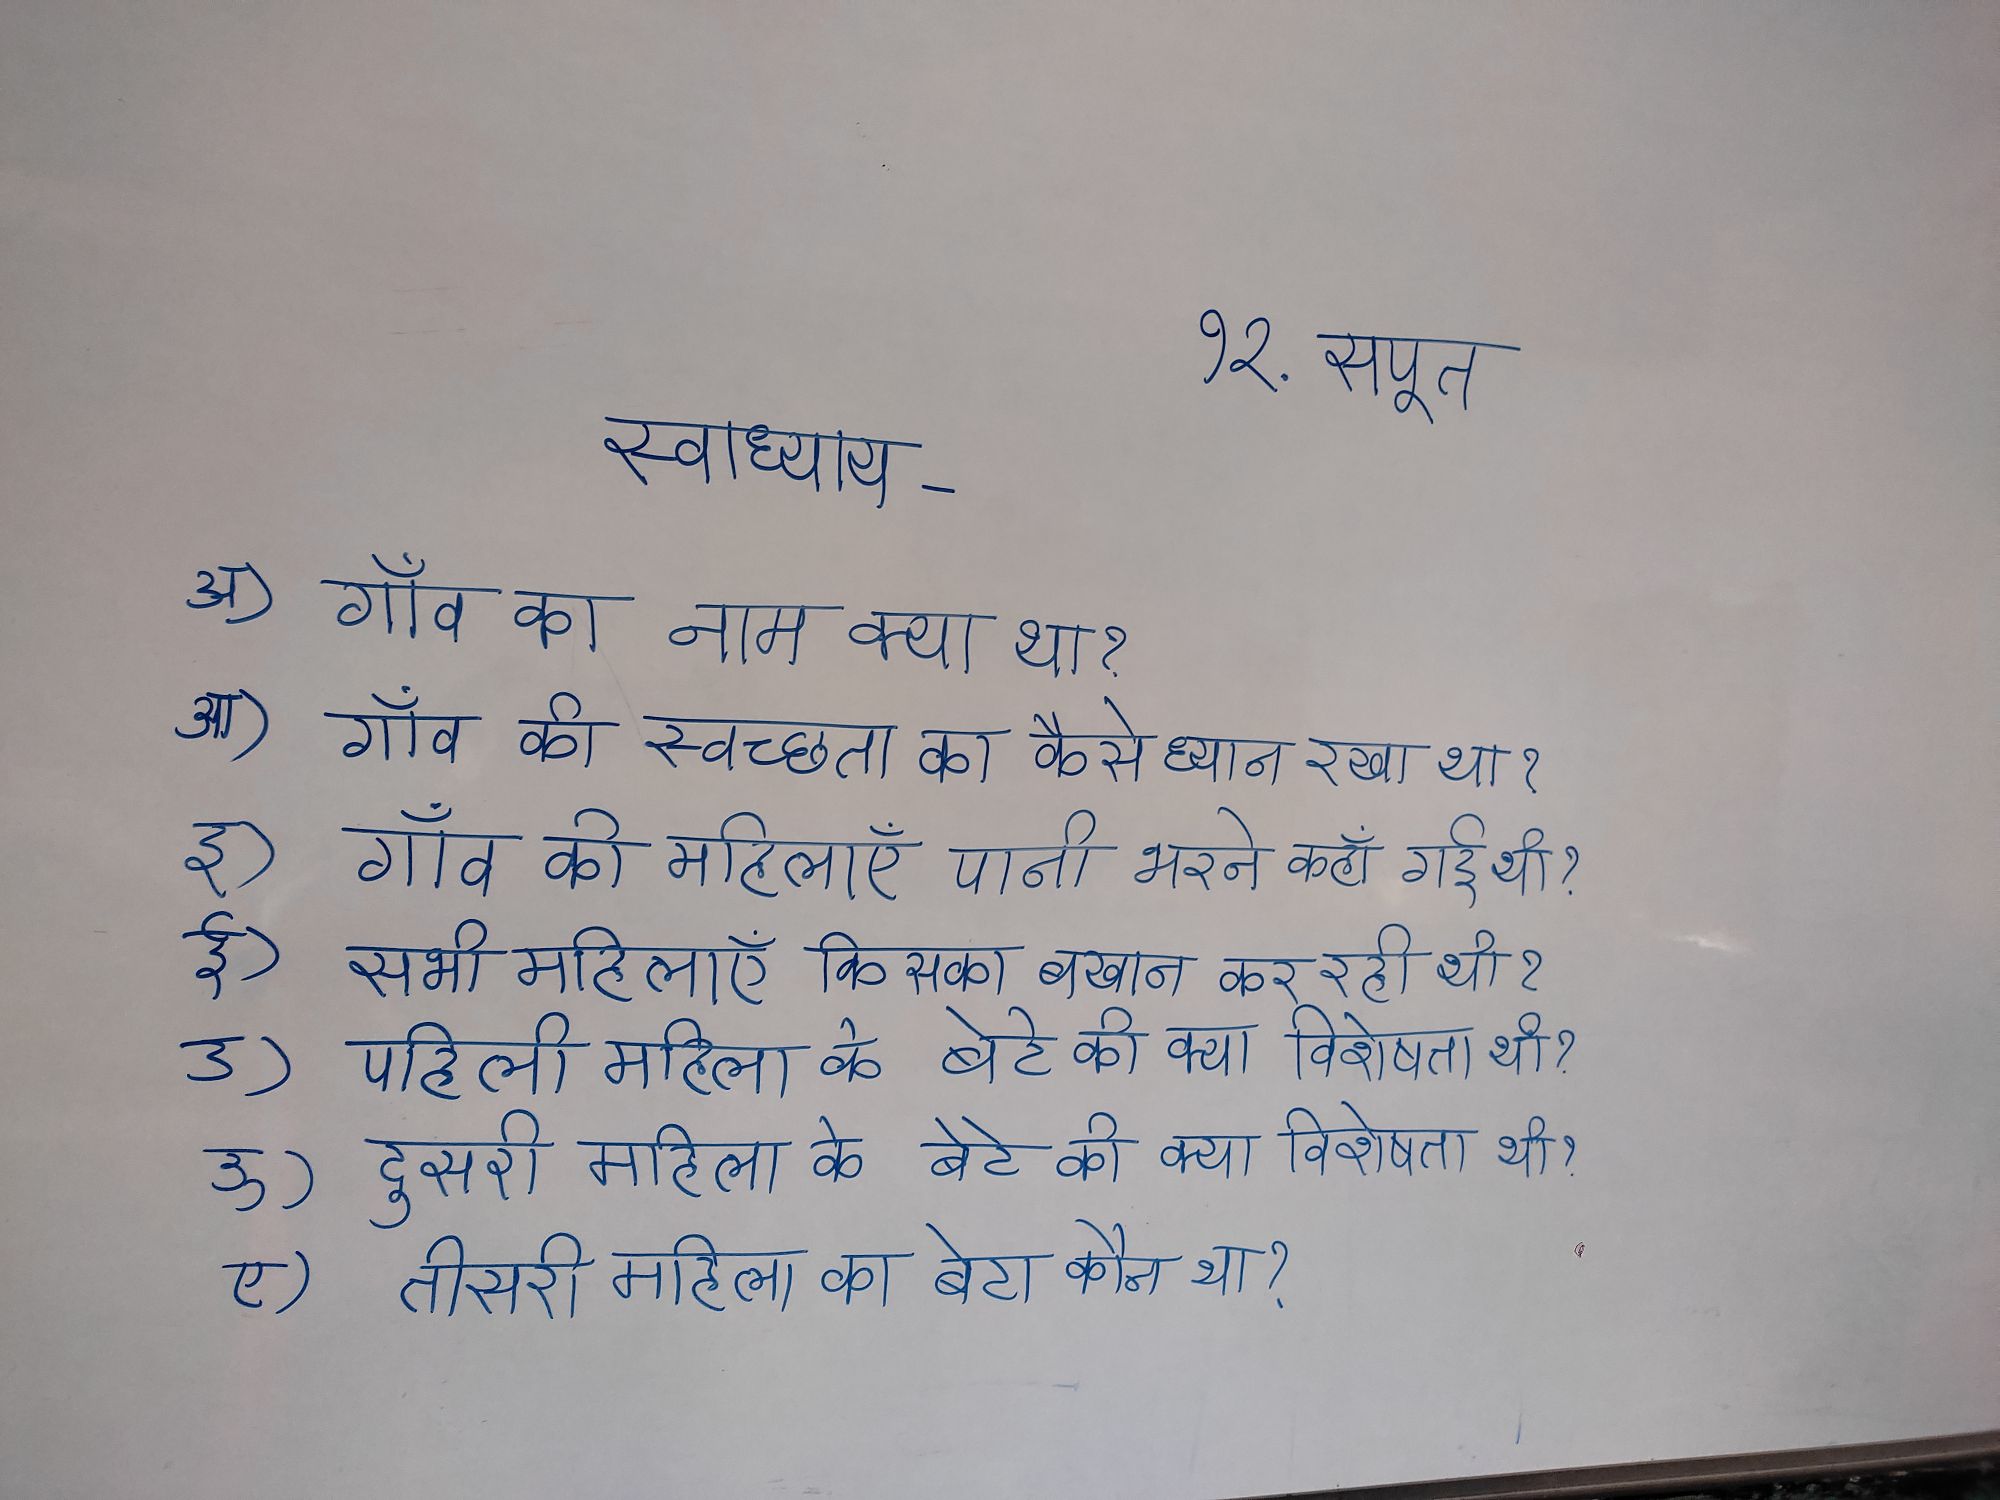 १२. सपूत
स्वाध्याय -
अ) गाँव का नाम क्या था?
आ) गाँव की स्वच्छता का कैसे ध्यान रखा था?
इ) गाँव की महिलाएँ पानी भरने कहाँ गई थी?
ई) सभी महिलाएँ किसका बखान कर रही थी?
उ) पहिली महिला के बेटे की क्या विशेषता थी?
ऊ) दुसरी महिला के बेटे की क्या विशेषता थी?
ए) तीसरी महिला का बेटा कौन था?